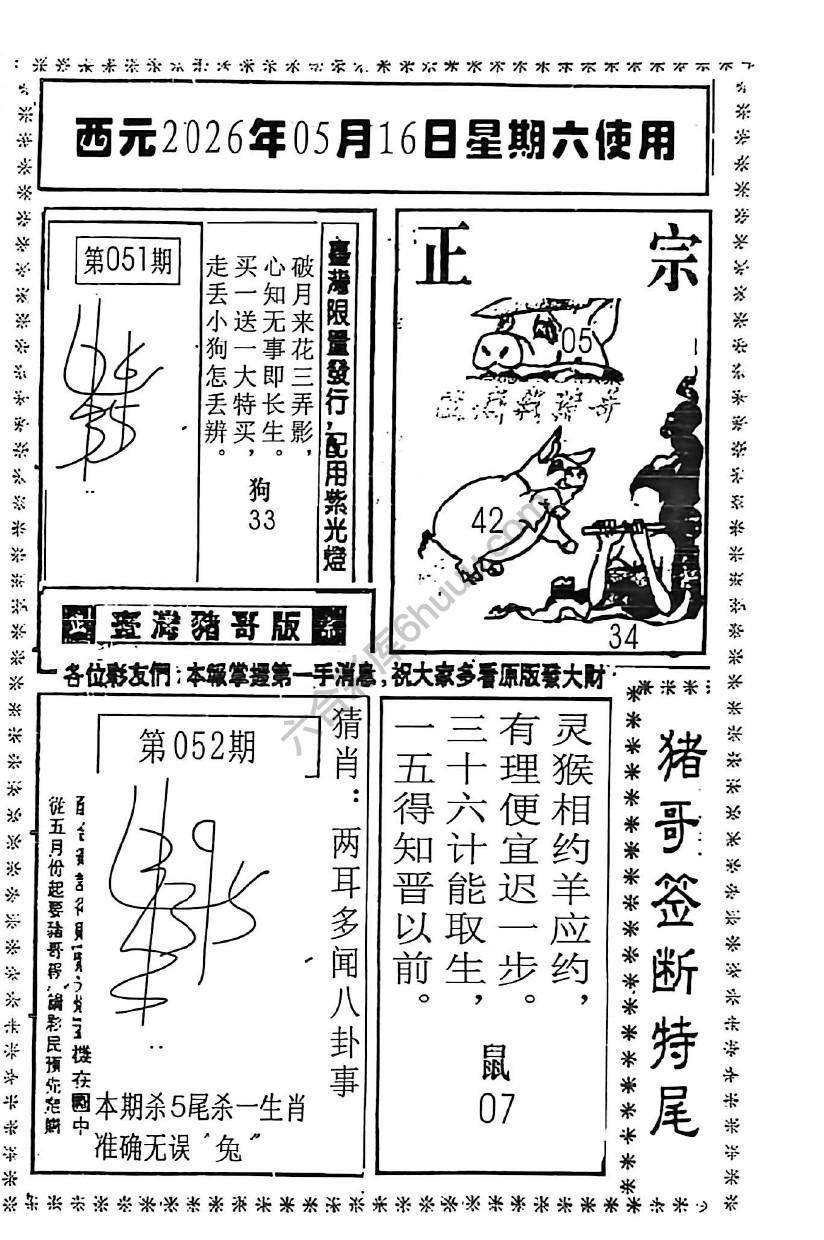 西元2026年05月16日星期六使用
第051期
破月来花三弄影，
心知无事即长生。
买一送一大特买，
走丢小狗怎丢辨。
狗
33
臺灣限量發行，配用紫光燈
正宗
05
42
34
臺灣豬哥版
各位彩友們：本報掌握第一手消息，祝大家多看原版發大財
第052期
猜肖：两耳多闻八卦事
從五月份起要豬哥報
機在國中
本期杀5尾杀一生肖
准确无误〝兔〞
灵猴相约羊应约，
有理便宜迟一步。
三十六计能取生，
一五得知晋以前。
鼠
07
猪哥签断特尾
六合彩库6huuu.com